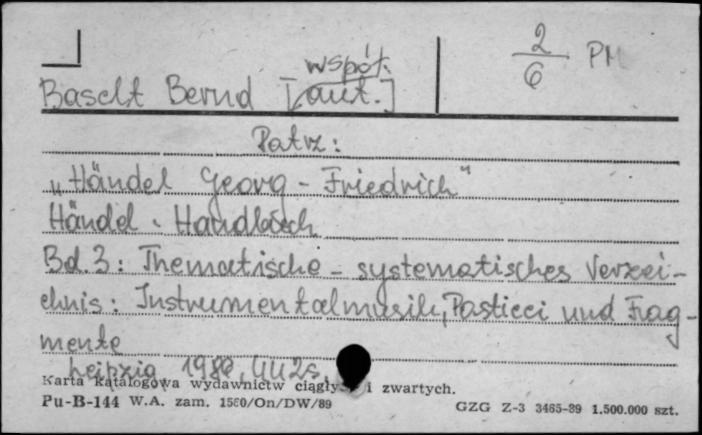 2/6 PM
współ.
Baselt Bernd [aut.]
Patrz:
„Händel Georg - Friedrich"
Händel - Handbuch
Bd. 3: Thematische - systematisches Verzei-
chnis: Instrumentalmusik, Pasticci und Frag-
mente
Leipzig 442s.
Karta katalogowa wydawnictw ciągłych i zwartych.
Pu-B-144 W.A. zam. 1580/On/DW/89 GZG Z-3 3465-89 1.500.000 szt.